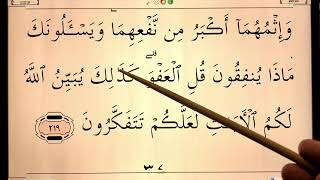 وَإِثْمُهُمَآ أَكْبَرُ مِن نَّفْعِهِمَا وَيَسْـَٔلُونَكَ
مَاذَا يُنفِقُونَ قُلِ ٱلْعَفْوَ ۗ كَذَٰلِكَ يُبَيِّنُ ٱللَّهُ
لَكُمُ ٱلْـَٔايَٰتِ لَعَلَّكُمْ تَتَفَكَّرُونَ ٢١٩
٣٤